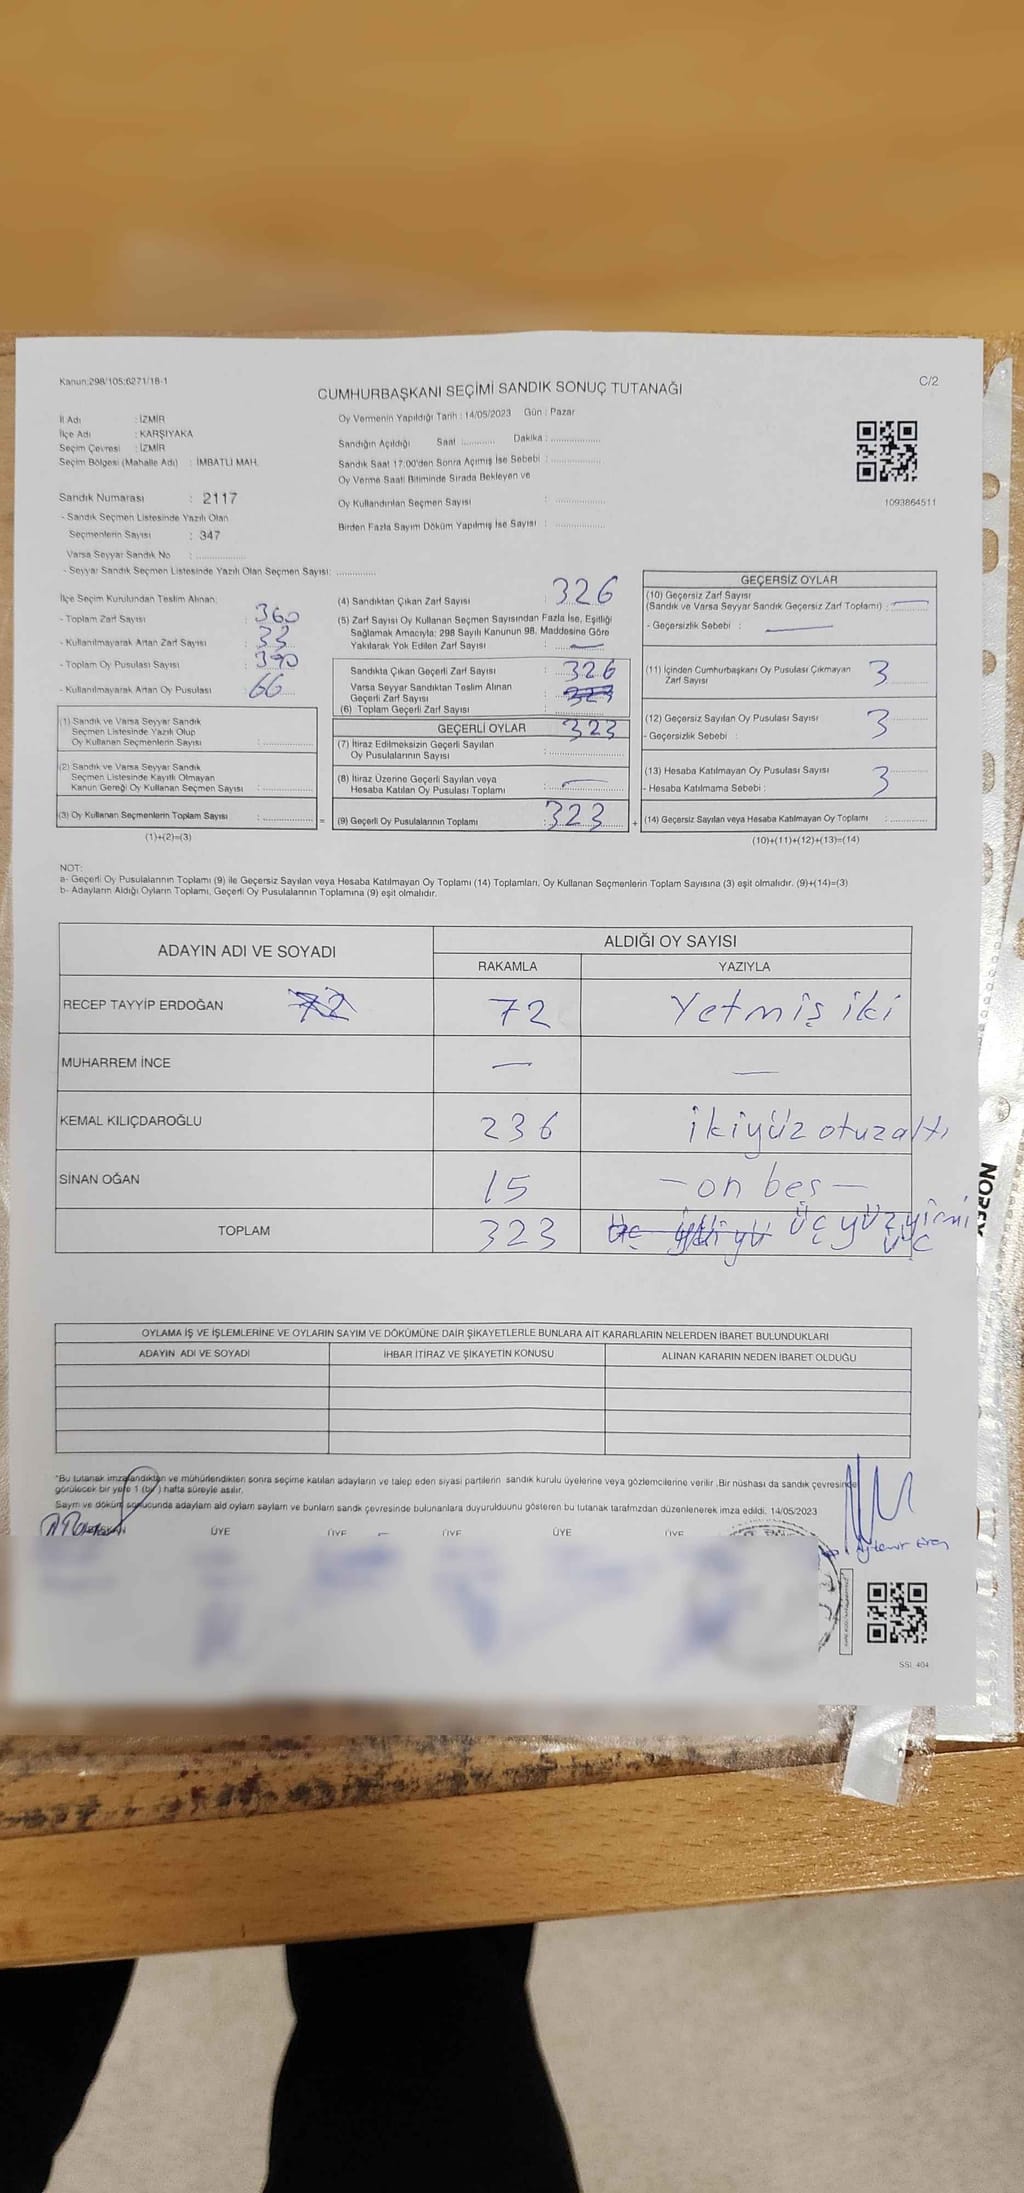 Kanun:298/105:6271/18-1
C/2
CUMHURBAŞKANI SEÇİMİ SANDIK SONUÇ TUTANAĞI
İl Adı : İZMİR
İlçe Adı : KARŞIYAKA
Seçim Çevresi : İZMİR
Seçim Bölgesi (Mahalle Adı) : İMBATLI MAH.
Sandık Numarası : 2117
- Sandık Seçmen Listesinde Yazılı Olan
Seçmenlerin Sayısı : 347
Varsa Seyyar Sandık No : ................
- Seyyar Sandık Seçmen Listesinde Yazılı Olan Seçmen Sayısı: .............
Oy Vermenin Yapıldığı Tarih : 14/05/2023 Gün : Pazar
Sandığın Açıldığı Saat ........... Dakika : ................
Sandık Saat 17:00'den Sonra Açımış İse Sebebi : ................
Oy Verme Saati Bitiminde Sırada Bekleyen ve
Oy Kullandırılan Seçmen Sayısı : ................
Birden Fazla Sayım Döküm Yapılmış İse Sayısı : ................
1093864511
İlçe Seçim Kurulundan Teslim Alınan:
- Toplam Zarf Sayısı : 360
- Kullanılmayarak Artan Zarf Sayısı : 33
- Toplam Oy Pusulası Sayısı : 390
- Kullanılmayarak Artan Oy Pusulası 66
(1) Sandık ve Varsa Seyyar Sandık
Seçmen Listesinde Yazılı Olup
Oy Kullanan Seçmenlerin Sayısı : ................
(2) Sandık ve Varsa Seyyar Sandık
Seçmen Listesinde Kayıtlı Olmayan
Kanun Gereği Oy Kullanan Seçmen Sayısı : ................
(3) Oy Kullanan Seçmenlerin Toplam Sayısı : ................
(1)+(2)=(3)
(4) Sandıktan Çıkan Zarf Sayısı : 326
(5) Zarf Sayısı Oy Kullanan Seçmen Sayısından Fazla İse, Eşitliği
Sağlamak Amacıyla; 298 Sayılı Kanunun 98. Maddesine Göre
Yakılarak Yok Edilen Zarf Sayısı : —
Sandıkta Çıkan Geçerli Zarf Sayısı : 326
Varsa Seyyar Sandıktan Teslim Alınan
Geçerli Zarf Sayısı : 323
(6) Toplam Geçerli Zarf Sayısı
GEÇERLİ OYLAR 323
(7) İtiraz Edilmeksizin Geçerli Sayılan
Oy Pusulalarının Sayısı : ................
(8) İtiraz Üzerine Geçerli Sayılan veya
Hesaba Katılan Oy Pusulası Toplamı : —
(9) Geçerli Oy Pusulalarının Toplamı : 323
GEÇERSİZ OYLAR
(10) Geçersiz Zarf Sayısı
(Sandık ve Varsa Seyyar Sandık Geçersiz Zarf Toplamı) : —
- Geçersizlik Sebebi : —
(11) İçinden Cumhurbaşkanı Oy Pusulası Çıkmayan
Zarf Sayısı 3
(12) Geçersiz Sayılan Oy Pusulası Sayısı : 3
- Geçersizlik Sebebi :
(13) Hesaba Katılmayan Oy Pusulası Sayısı : 3
- Hesaba Katılmama Sebebi :
(14) Geçersiz Sayılan veya Hesaba Katılmayan Oy Toplamı : ...........
(10)+(11)+(12)+(13)=(14)
NOT:
a- Geçerli Oy Pusulalarının Toplamı (9) ile Geçersiz Sayılan veya Hesaba Katılmayan Oy Toplamı (14) Toplamları, Oy Kullanan Seçmenlerin Toplam Sayısına (3) eşit olmalıdır. (9)+(14)=(3)
b- Adayların Aldığı Oyların Toplamı, Geçerli Oy Pusulalarının Toplamına (9) eşit olmalıdır.
ADAYIN ADI VE SOYADI
ALDIĞI OY SAYISI
RAKAMLA YAZIYLA
RECEP TAYYİP ERDOĞAN 72 72 Yetmiş iki
MUHARREM İNCE — —
KEMAL KILIÇDAROĞLU 236 ikiyüz otuzaltı
SİNAN OĞAN 15 — on beş —
TOPLAM 323 üçyüzyirmi
üç
OYLAMA İŞ VE İŞLEMLERİNE VE OYLARIN SAYIM VE DÖKÜMÜNE DAİR ŞİKAYETLERLE BUNLARA AİT KARARLARIN NELERDEN İBARET BULUNDUKLARI
ADAYIN ADI VE SOYADI İHBAR İTİRAZ VE ŞİKAYETİN KONUSU ALINAN KARARIN NEDEN İBARET OLDUĞU
"Bu tutanak imzalandıktan ve mühürlendikten sonra seçime katılan adayların ve talep eden siyasi partilerin sandık kurulu üyelerine veya gözlemcilerine verilir .Bir nüshası da sandık çevresinde
görülecek bir yere 1 (bir) hafta süreyle asılır.
Sayım ve döküm sonucunda adayların ald oyların sayların ve bunların sandk çevresinde bulunanlara duyurulduunu gösteren bu tutanak tarafmzdan düzenlenerek imza edildi. 14/05/2023
ÜYE ÜYE ÜYE ÜYE ÜYE
SSL 404